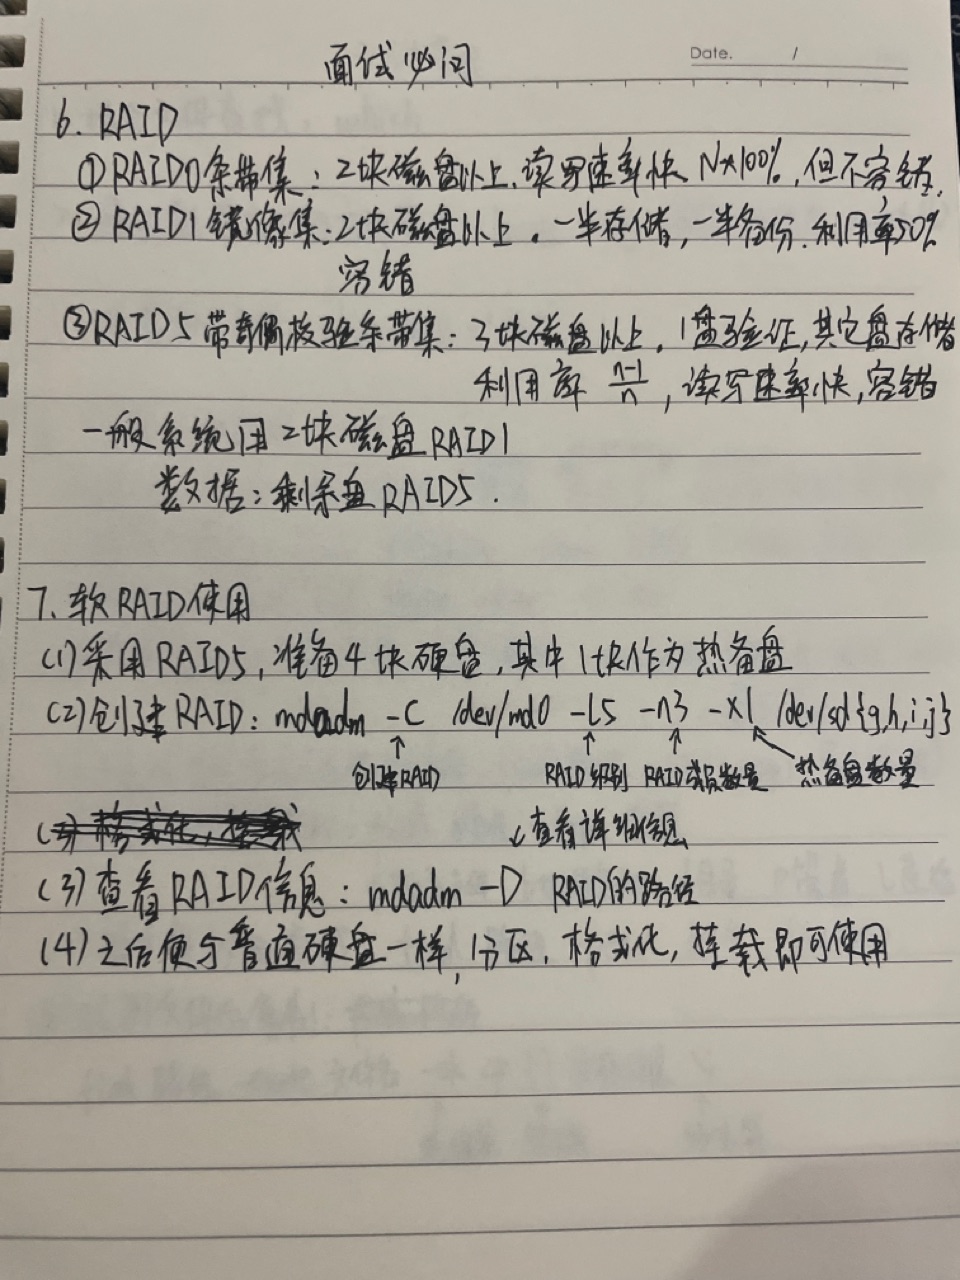 面试必问
Date. /
6. RAID
①RAID0条带集：2块磁盘以上，读写速率快 N*100%，但不容错，
②RAID1镜像集：2块磁盘以上。一半存储，一半备份，利用率50%
容错
③RAID5带奇偶校验条带集：3块磁盘以上，1盘验证，其它盘存储
利用率 n-1/n，读写速率快，容错
一般系统用2块磁盘RAID1
数据：剩余盘RAID5.
7. 软RAID使用
(1)采用RAID5，准备4块硬盘，其中1块作为热备盘
(2)创建RAID：mdadm -C /dev/md0 -l5 -n3 -x1 /dev/sd{g,h,i,j}
创建RAID RAID级别 RAID成员数量 热备盘数量
查看详细信息
(3)查看RAID信息：mdadm -D RAID的路径
(4)之后便与普通硬盘一样，分区，格式化，挂载即可使用